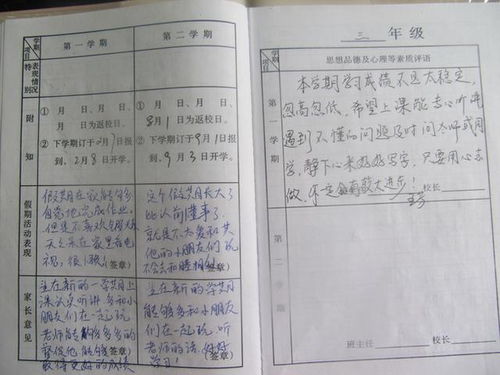 学期
项目
第一学期
第二学期
特别
表现情况
附知
① 月 日、 月 日、
月 日为返校日。
② 下学期订于2月7日报
到、2月8日开学。
① 月 日、 月 日、
8月1日为返校日。
② 下学期订于9月1日报
到、9月3日开学。
假期活动表现
假期在家能够多
自觉地完成作业，
但是不喜欢
天天呆在家里看电
视，很
（签章）
这个假期长大了
比以前懂事了，
就是不太爱和其
他的小朋友们玩
不会去和睦相处
（签章）
家长意见
望在新的一学期上
课认真听讲 多和小
朋友们在一起玩
老师能够多多的
督促他，能够
（签章）
取得更好的成绩
望在新的学期
能够多和小朋友
们在一起玩，听
老师的话，好好
学习！
（签章）
三年级
学期
项目
思想品德及心理等素质评语
第一学期
本学期学习成绩不是太稳定，
忽高忽低，希望上课能专心听讲
遇到不懂的问题及时问老师或同
学，静下心来好好写字，只要用心去
做，一定会有更大进步！
校长
第二学期
班主任
校长